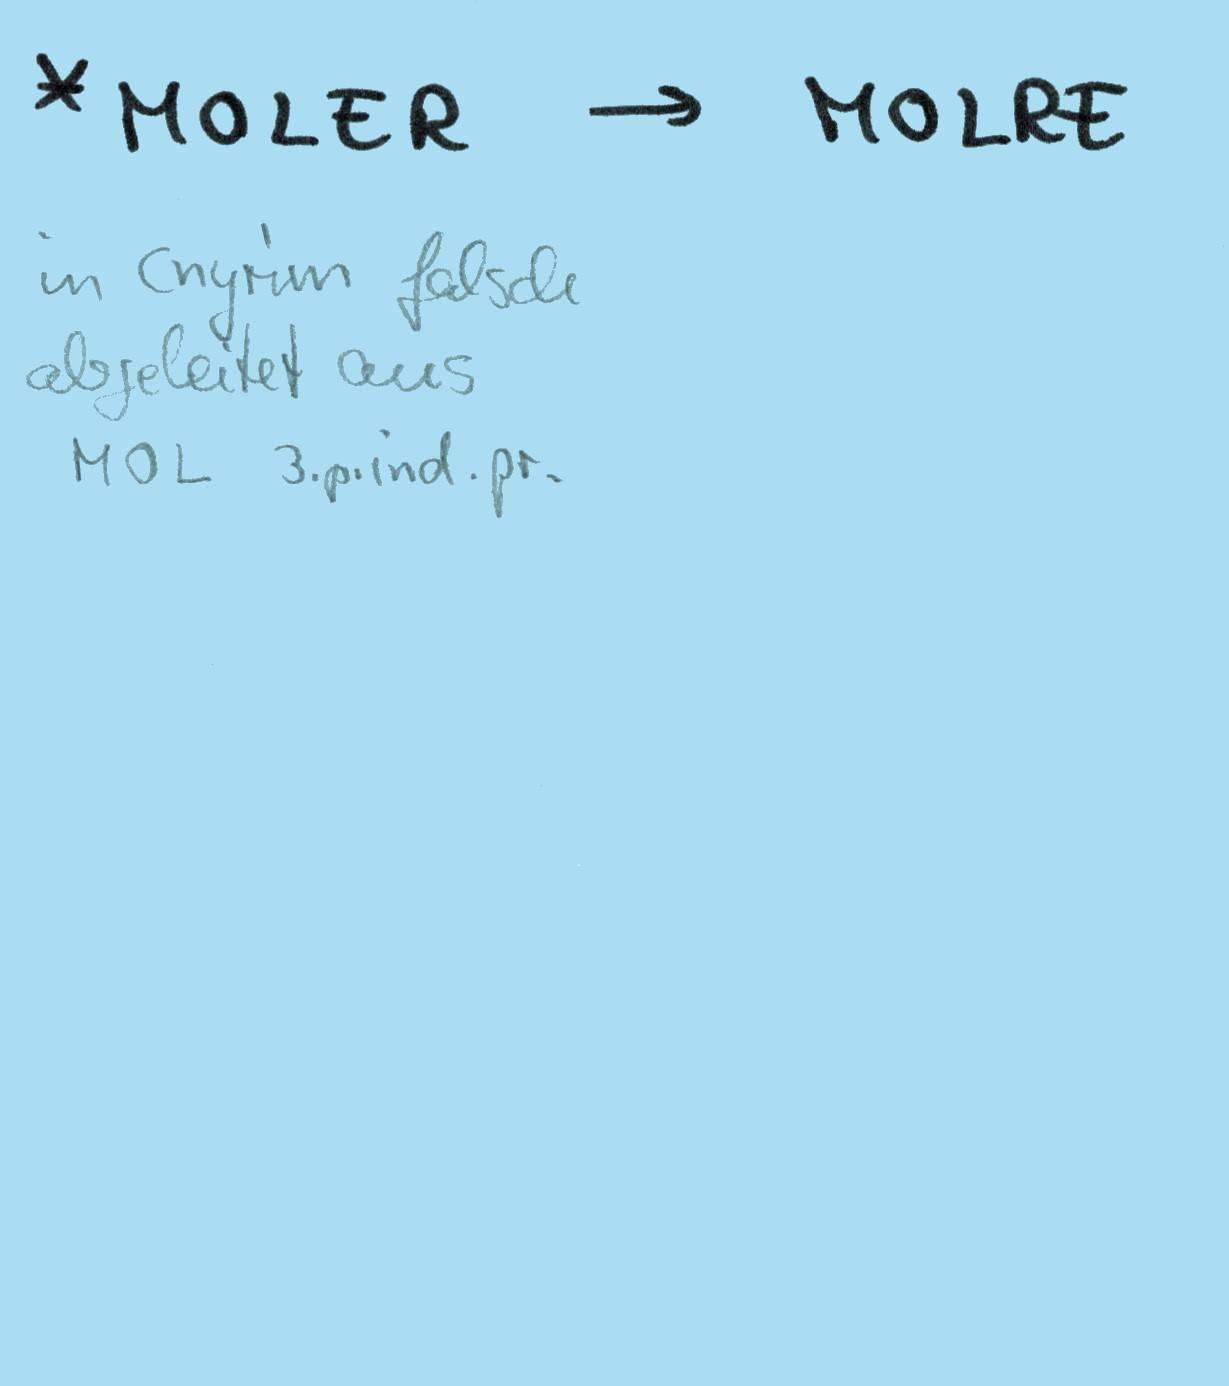 *MOLER → MOLRE
in Cnyrim falsch
abgeleitet aus
MOL 3.p.ind.pr.